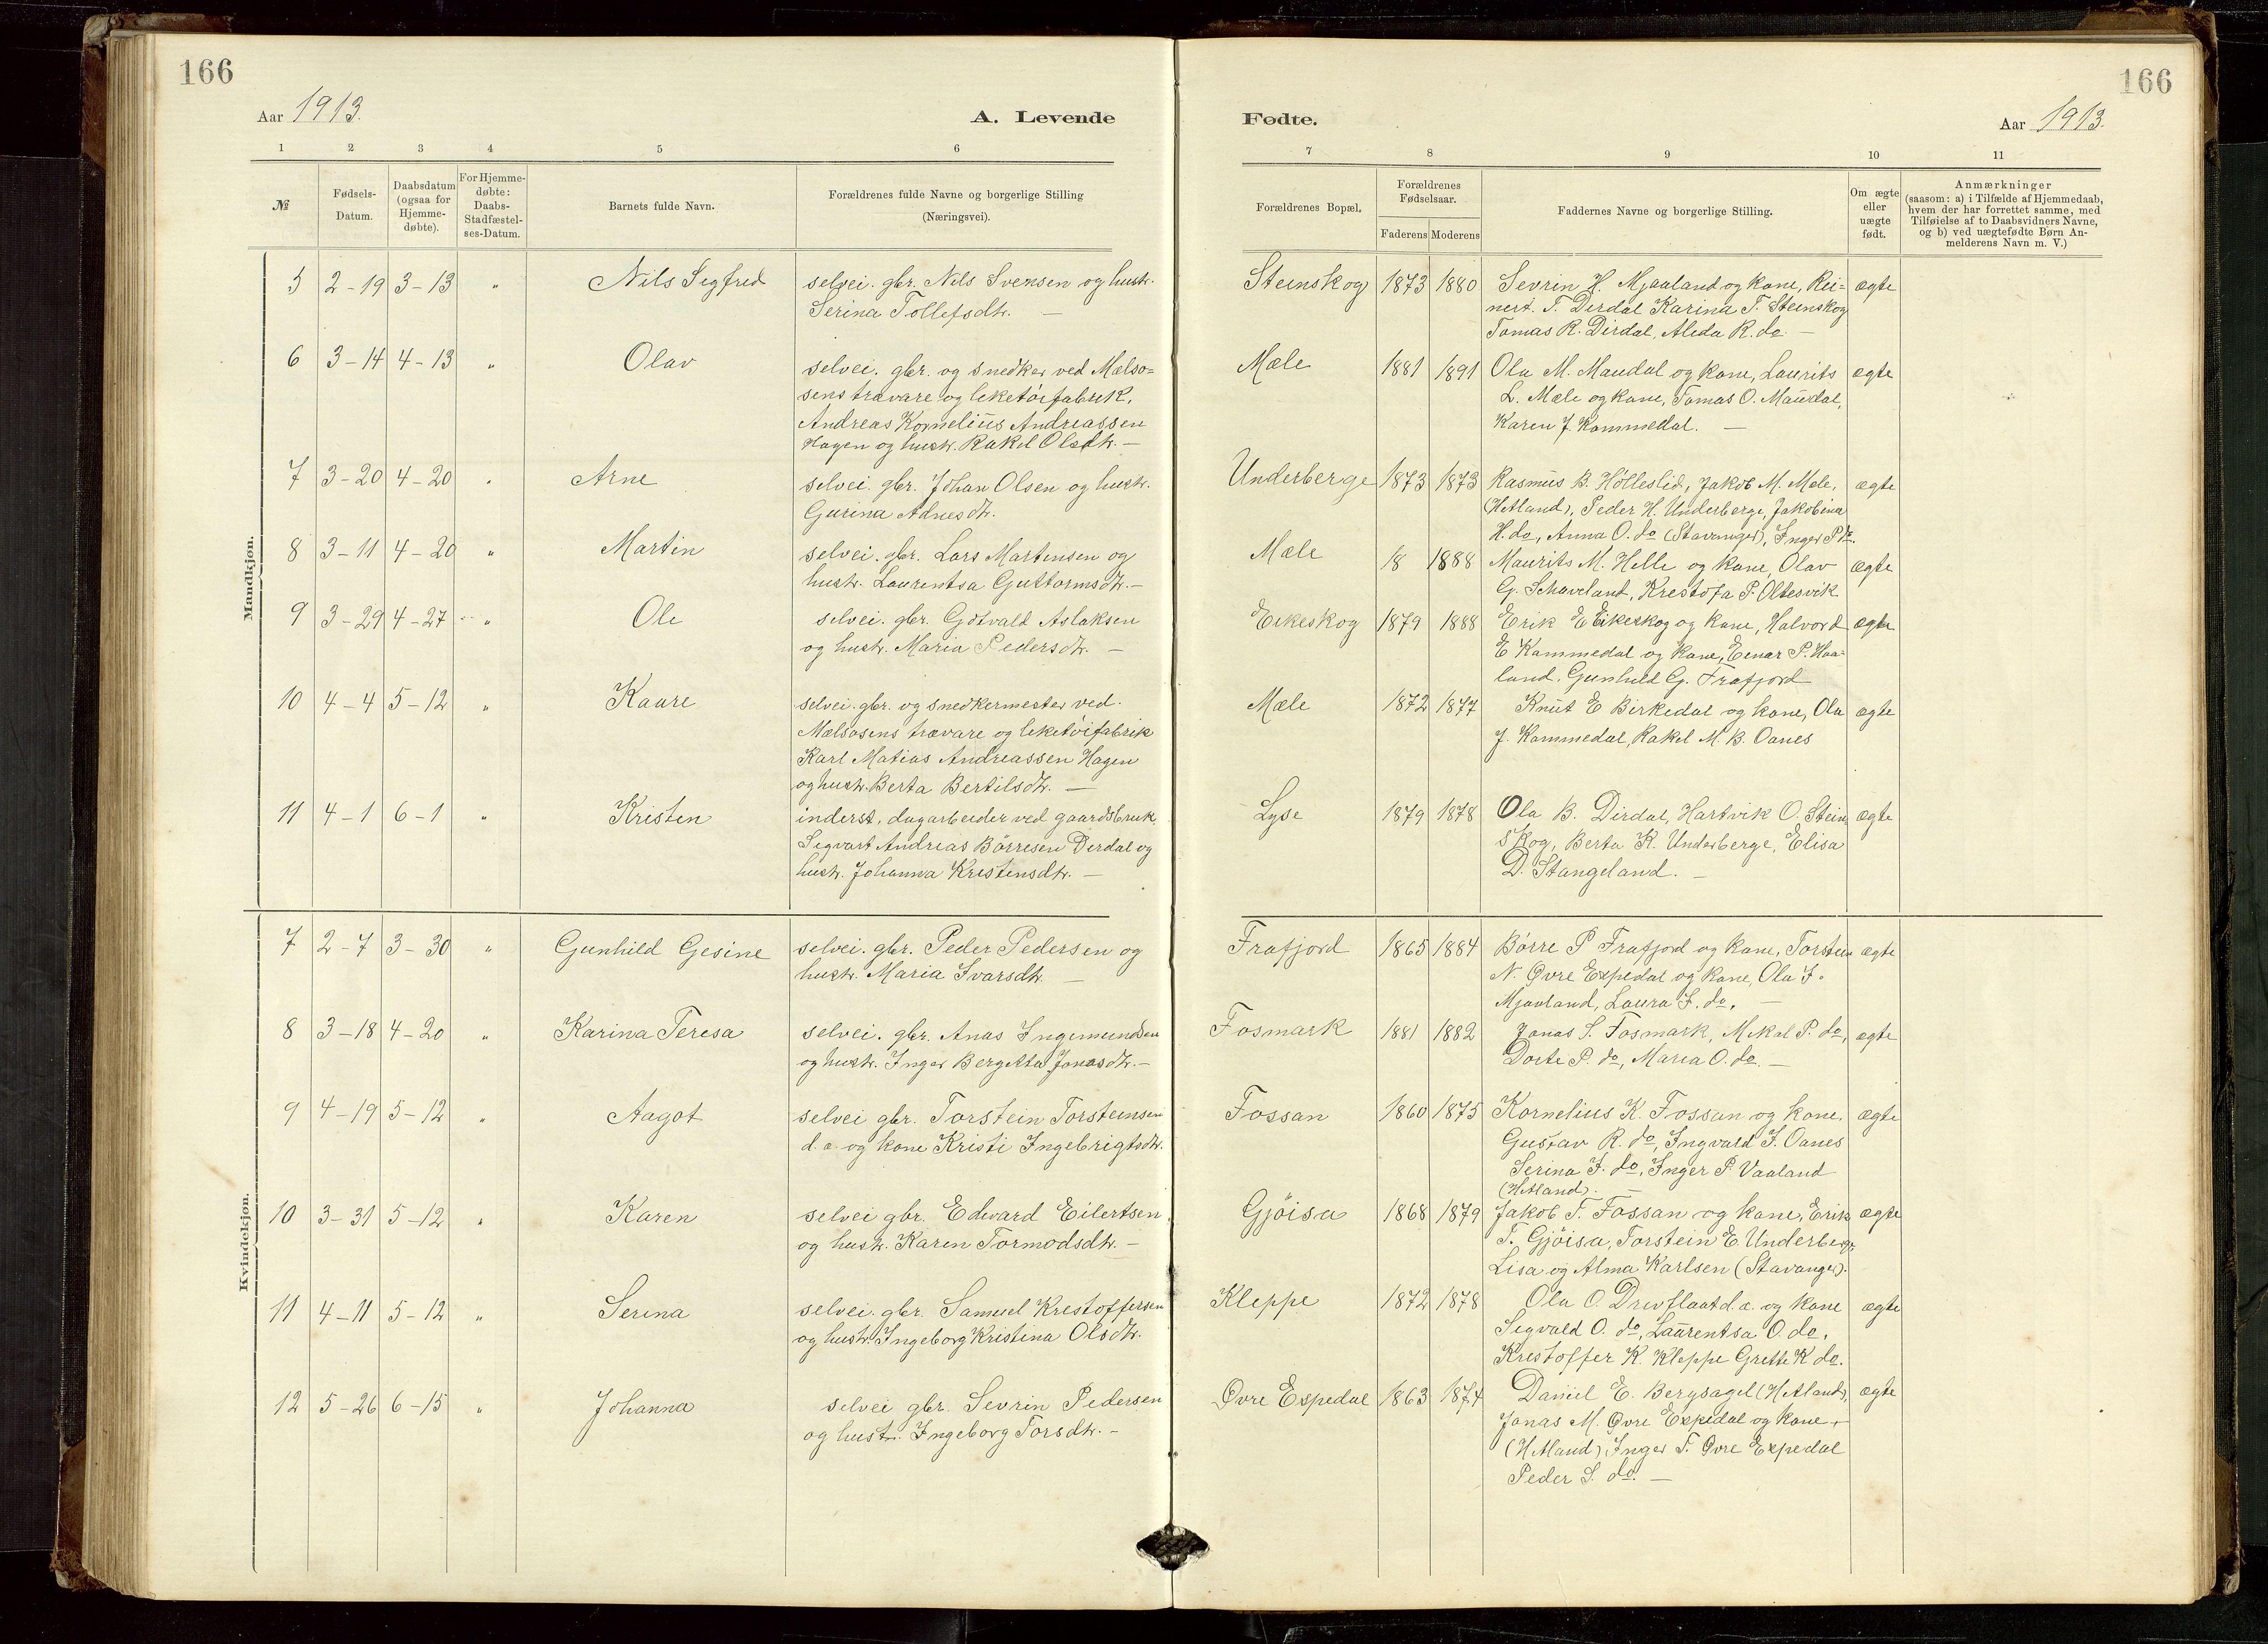 166
Aar 1913.
A. Levende
1 2 3 4 5 6
№
Fødsels-
Datum.
Daabsdatum
(ogsaa for
Hjemme-
døbte).
For Hjemme-
døbte:
Daabs-
Stadfæstel-
ses-Datum.
Barnets fulde Navn.
Forældrenes fulde Navne og borgerlige Stilling
(Næringsvei).
Mandkjøn.
5 2-19 3-13 " Nils Sigfred selvei. gbr. Nils Svensen og hustr.
Serina Tollefsdtr. —
6 3-14 4-13 " Olav selvei. gbr. og snedker ved Mælso=
sens trævare og leketöifabrik,
Andreas Kornelius Andreassen
Hagen og hustr. Rakel Olsdtr. —
7 3-20 4-20 " Arne selvei. gbr. Johan Olsen og hustr.
Gurina Adnesdtr.
8 3-11 4-20 " Martin selvei. gbr. Lars Martensen og
hustr. Laurentsa Guttormsdtr. —
9 3-29 4-27 " Ole selvei. gbr. Gotvald Aslaksen
og hustr. Maria Pedersdtr. —
10 4-4 5-12 " Kaare selvei. gbr. og snedkermester ved.
Mælsosens trævare og leketöifabrik
Karl Matias Andreassen Hagen
og hustr. Berta Bertilsdtr. —
11 4-1 6-1 " Kristen inderst, dagarbeider ved gaardsbruk,
Sigvart Andreas Börresen Dirdal og
hustr. Johanna Kristensdtr. —
Kvindekjøn.
7 2-7 3-30 " Gunhild Gesine selvei. gbr. Peder Pedersen og
hustr. Maria Ivarsdtr. —
8 3-18 4-20 " Karina Teresa selvei. gbr. Anas Ingemundsen
og hustr. Inger Bergitta Jonasdtr. —
9 4-19 5-12 " Aagot selvei gbr. Torstein Torsteinsen
d. a. og kone Kristi Ingebrigtsdtr.
10 3-31 5-12 " Karen selvei gbr. Edvard Eilertsen
og hustr. Karen Tormodsdtr. —
11 4-11 5-12 " Serina selvei. gbr. Samuel Kristoffersen
og hustr. Ingeborg Kristina Olsdtr.
12 5-26 6-15 " Johanna selvei gbr. Sevrin Pedersen
og hustr. Ingeborg Torsdtr. —
166
Fødte.
Aar 1913.
7 8 9 10 11
Forældrenes Bopæl.
Forældrenes
Fødselsaar.
Faderens Moderens
Faddernes Navne og borgerlige Stilling.
Om ægte
eller
uægte
født.
Anmærkninger
(saasom: a) i Tilfælde af Hjemmedaab,
hvem der har forrettet samme, med
Tilføielse af to Daabsvidners Navne,
og b) ved uægtefødte Børn An-
melderens Navn m. V.)
Steinskog 1873 1880 Sevrin H. Mjaaland og kone, Rei= ægte
nert. T. Dirdal Karina T. Steinskog
Tomas R. Dirdal, Aleda R. do. —
Mæle 1881 1891 Ola M. Maudal og kone, Laurits ægte
L. Mæle og kone, Tomas O. Maudal,
Karen J. Kommedal. —
Underberge 1873 1873 Rasmus B. Hölleslid, Jakob M. Mele, ægte
(Hetland), Peder H. Underberge, Jakobina
H. do, Anna O. do (Stavanger), Inger P do.
Mæle 18 1888 Maurits M. Helle og kone, Olav ægte
G. Schaveland, Kristofa P. Oltesvik
Eikeskog 1879 1888 Erik E Eikeskog og kone, Halvord ægte
E Kommedal og kone, Einar P. Haa-
land, Gunhild G. Frafjord
Mæle 1872 1877 Knut E Birkedal og kone, Ola ægte
J. Kommedal, Rakel M. B. Oanes
Lyse 1879 1878 Ola B. Dirdal, Hartvik O. Stein= ægte
skog, Berta K. Underberge, Elisa
D. Stangeland. —
Frafjord 1865 1884 Börre P Frafjord og kone, Torstein ægte
N. Øvre Espedal og kone, Ola I.
Mjaaland, Laura I. do. —
Fosmark 1881 1882 Jonas S. Fosmark, Mikal P. do, ægte
Dorte P. do, Maria O. do. —
Fossan 1860 1875 Kornelius K. Fossan og kone, ægte
Gustav R. do, Ingvald I. Oanes
Serina I. do, Inger P. Vaaland
(Hetland).
Gjöisa 1868 1879 Jakob T. Fossan og kone, Erik ægte
T. Gjöisa, Torstein E. Underberge,
Lisa og Alma Karlsen (Stavanger).
Kleppe 1872 1878 Ola O. Drevflaat d. a. og kone ægte
Sigvald O. do, Laurentsa O. do.
Kristoffer K. Kleppe Grette K do.
Øvre Espedal 1863 1874 Daniel E. Bergsagel (Hetland), ægte
Jonas M. Øvre Espedal og kone,
(Hetland), Inger T. Øvre Espedal
Peder S. do. —